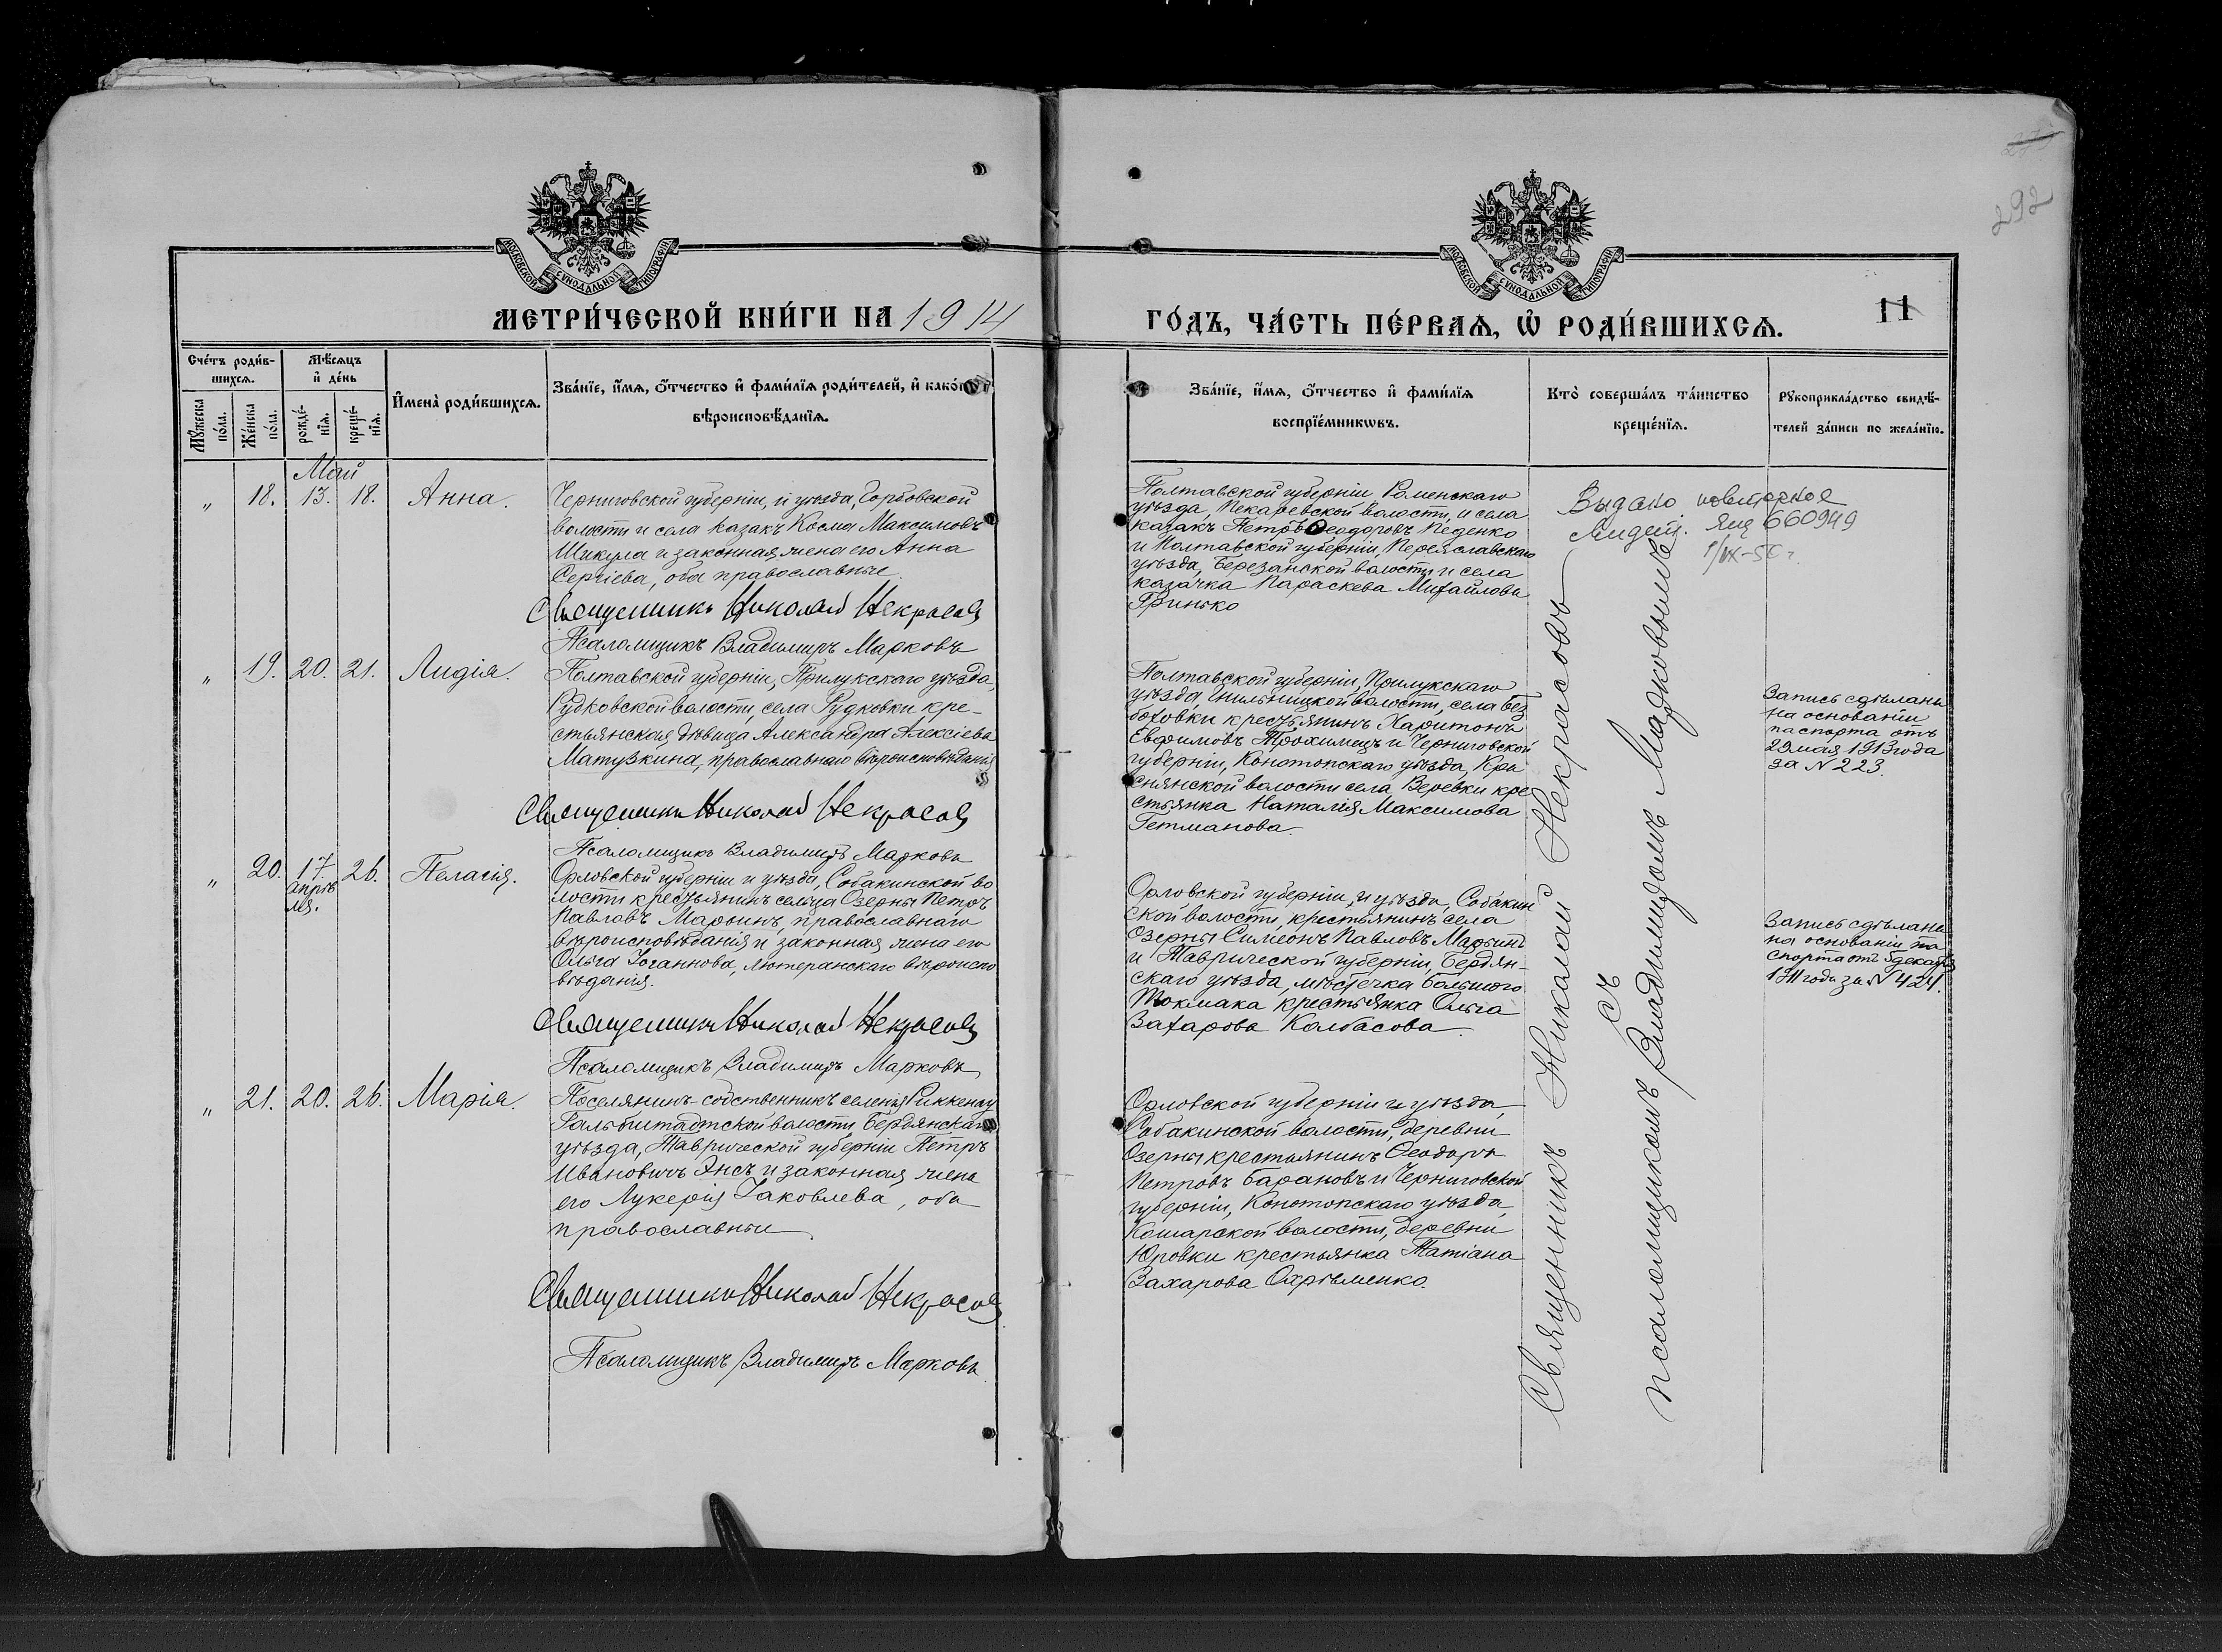 292
МОСКОВСКОЙ СѴНОДАЛЬНОЙ ТИПОГРАФІИ
МОСКОВСКОЙ СѴНОДАЛЬНОЙ ТИПОГРАФІИ
МЕТРИ́ЧЕСКОЙ КНИ́ГИ НА 1914
ГО́ДЪ, ЧА́СТЬ ПЕ́РВАѦ, Ѡ҆ РОДИ́ВШИХСѦ.
11
Сче́тъ роди́в-
шихсѧ.
Мѣ́сѧцъ
и҆ де́нь
Мꙋ́жеска
по́ла.
Же́нска
по́ла.
рожде́-
нїѧ.
креще́-
нїѧ.
И҆мена̀ роди́вшихсѧ.
Зва́нїе, и҆́мѧ, ѻ҆́тчество и҆ фами́лїѧ роди́телей, и҆ како́гѡ
вѣроисповѣ́данїѧ.
Зва́нїе, и҆́мѧ, ѻ҆́тчество и҆ фами́лїѧ
воспрїе́мникѡвъ.
Кто̀ соверша́лъ та́инство
креще́нїѧ.
Рꙋкоприкла́дство свидѣ́-
телей за́писи по жела́нїю.
Май
" 18. 13. 18. Анна.
Черниговской губерніи, и уѣзда, Горбовской
волости и села казакъ Косма Максимовъ
Шикула и законная жена его Анна
Сергіева, оба православные.
Священникъ Николай Некрасовъ
Псаломщикъ Владимиръ Марковъ
Полтавской губерніи, Роменскаго
уѣзда, Пекаревской волости, и села
казакъ Петръ Ѳеодоровъ Педенко
и Полтавской губерніи, Переяславскаго
уѣзда, Березанской волости и села
казачка Параскева Михайлова
Гринько
Выдано повторное
660949
" 19. 20. 21. Лидія.
Полтавской губерніи, Прилукскаго уѣзда,
Рудковской волости, села Рудковки кре-
стьянская дѣвица Александра Алексіева
Матузкина, православнаго вѣроисповѣданія
Священникъ Николай Некрасовъ
Псаломщикъ Владимиръ Марковъ
Полтавской губерніи, Прилукскаго
уѣзда, волости, села
крестьянинъ Харитонъ
Евфимовъ Трохимецъ и Черниговской
губерніи, Конотопскаго уѣзда, Кра-
снянской волости села Веревки кре-
стьянка Наталія Максимова
Гетманова.
Запись сдѣлана
на основаніи
паспорта отъ
29 мая 1913 года
за N 223.
" 20. 17. апрѣ
ля. 26. Пелагія.
Орловской губерніи и уѣзда, Собакинской во
лости крестьянинъ сельца Озерны Петръ
Павловъ Марьинъ, православнаго
вѣроисповѣданія и законная жена его
Ольга Іоганнова, лютеранскаго вѣроиспо
вѣданія.
Священникъ Николай Некрасовъ
Псаломщикъ Владимиръ Марковъ
Орловской губерніи, и уѣзда, Собакин
ской волости, крестьянинъ села
Озерны Симеонъ Павловъ Марьинъ
и Таврической губерніи, Бердян-
скаго уѣзда, мѣстечка Большого
Токмака крестьянка Ольга
Захарова Колбасова.
Запись сдѣлана
на основаніи па
спорта отъ декабря
года за N 424.
" 21. 20. 26. Марія.
Поселянинъ-собственникъ селенія Риккенау
Гальбштадтской волости Бердянскаго
уѣзда, Таврической губерніи Петръ
Ивановичъ Энсъ и законная жена
его Лукерія Іаковлева, оба
православные.
Священникъ Николай Некрасовъ
Псаломщикъ Владимиръ Марковъ
Орловской губерніи и уѣзда,
Собакинской волости, деревни
Озерны крестьянинъ Ѳеодоръ
Петровъ Барановъ и Черниговской
губерніи, Конотопскаго уѣзда,
Кошарской волости, деревни
Юровки крестьянка Татіана
Захарова Охрѣменко.
Священникъ Николай Некрасовъ
съ
псаломщикомъ Владимиромъ Марковымъ